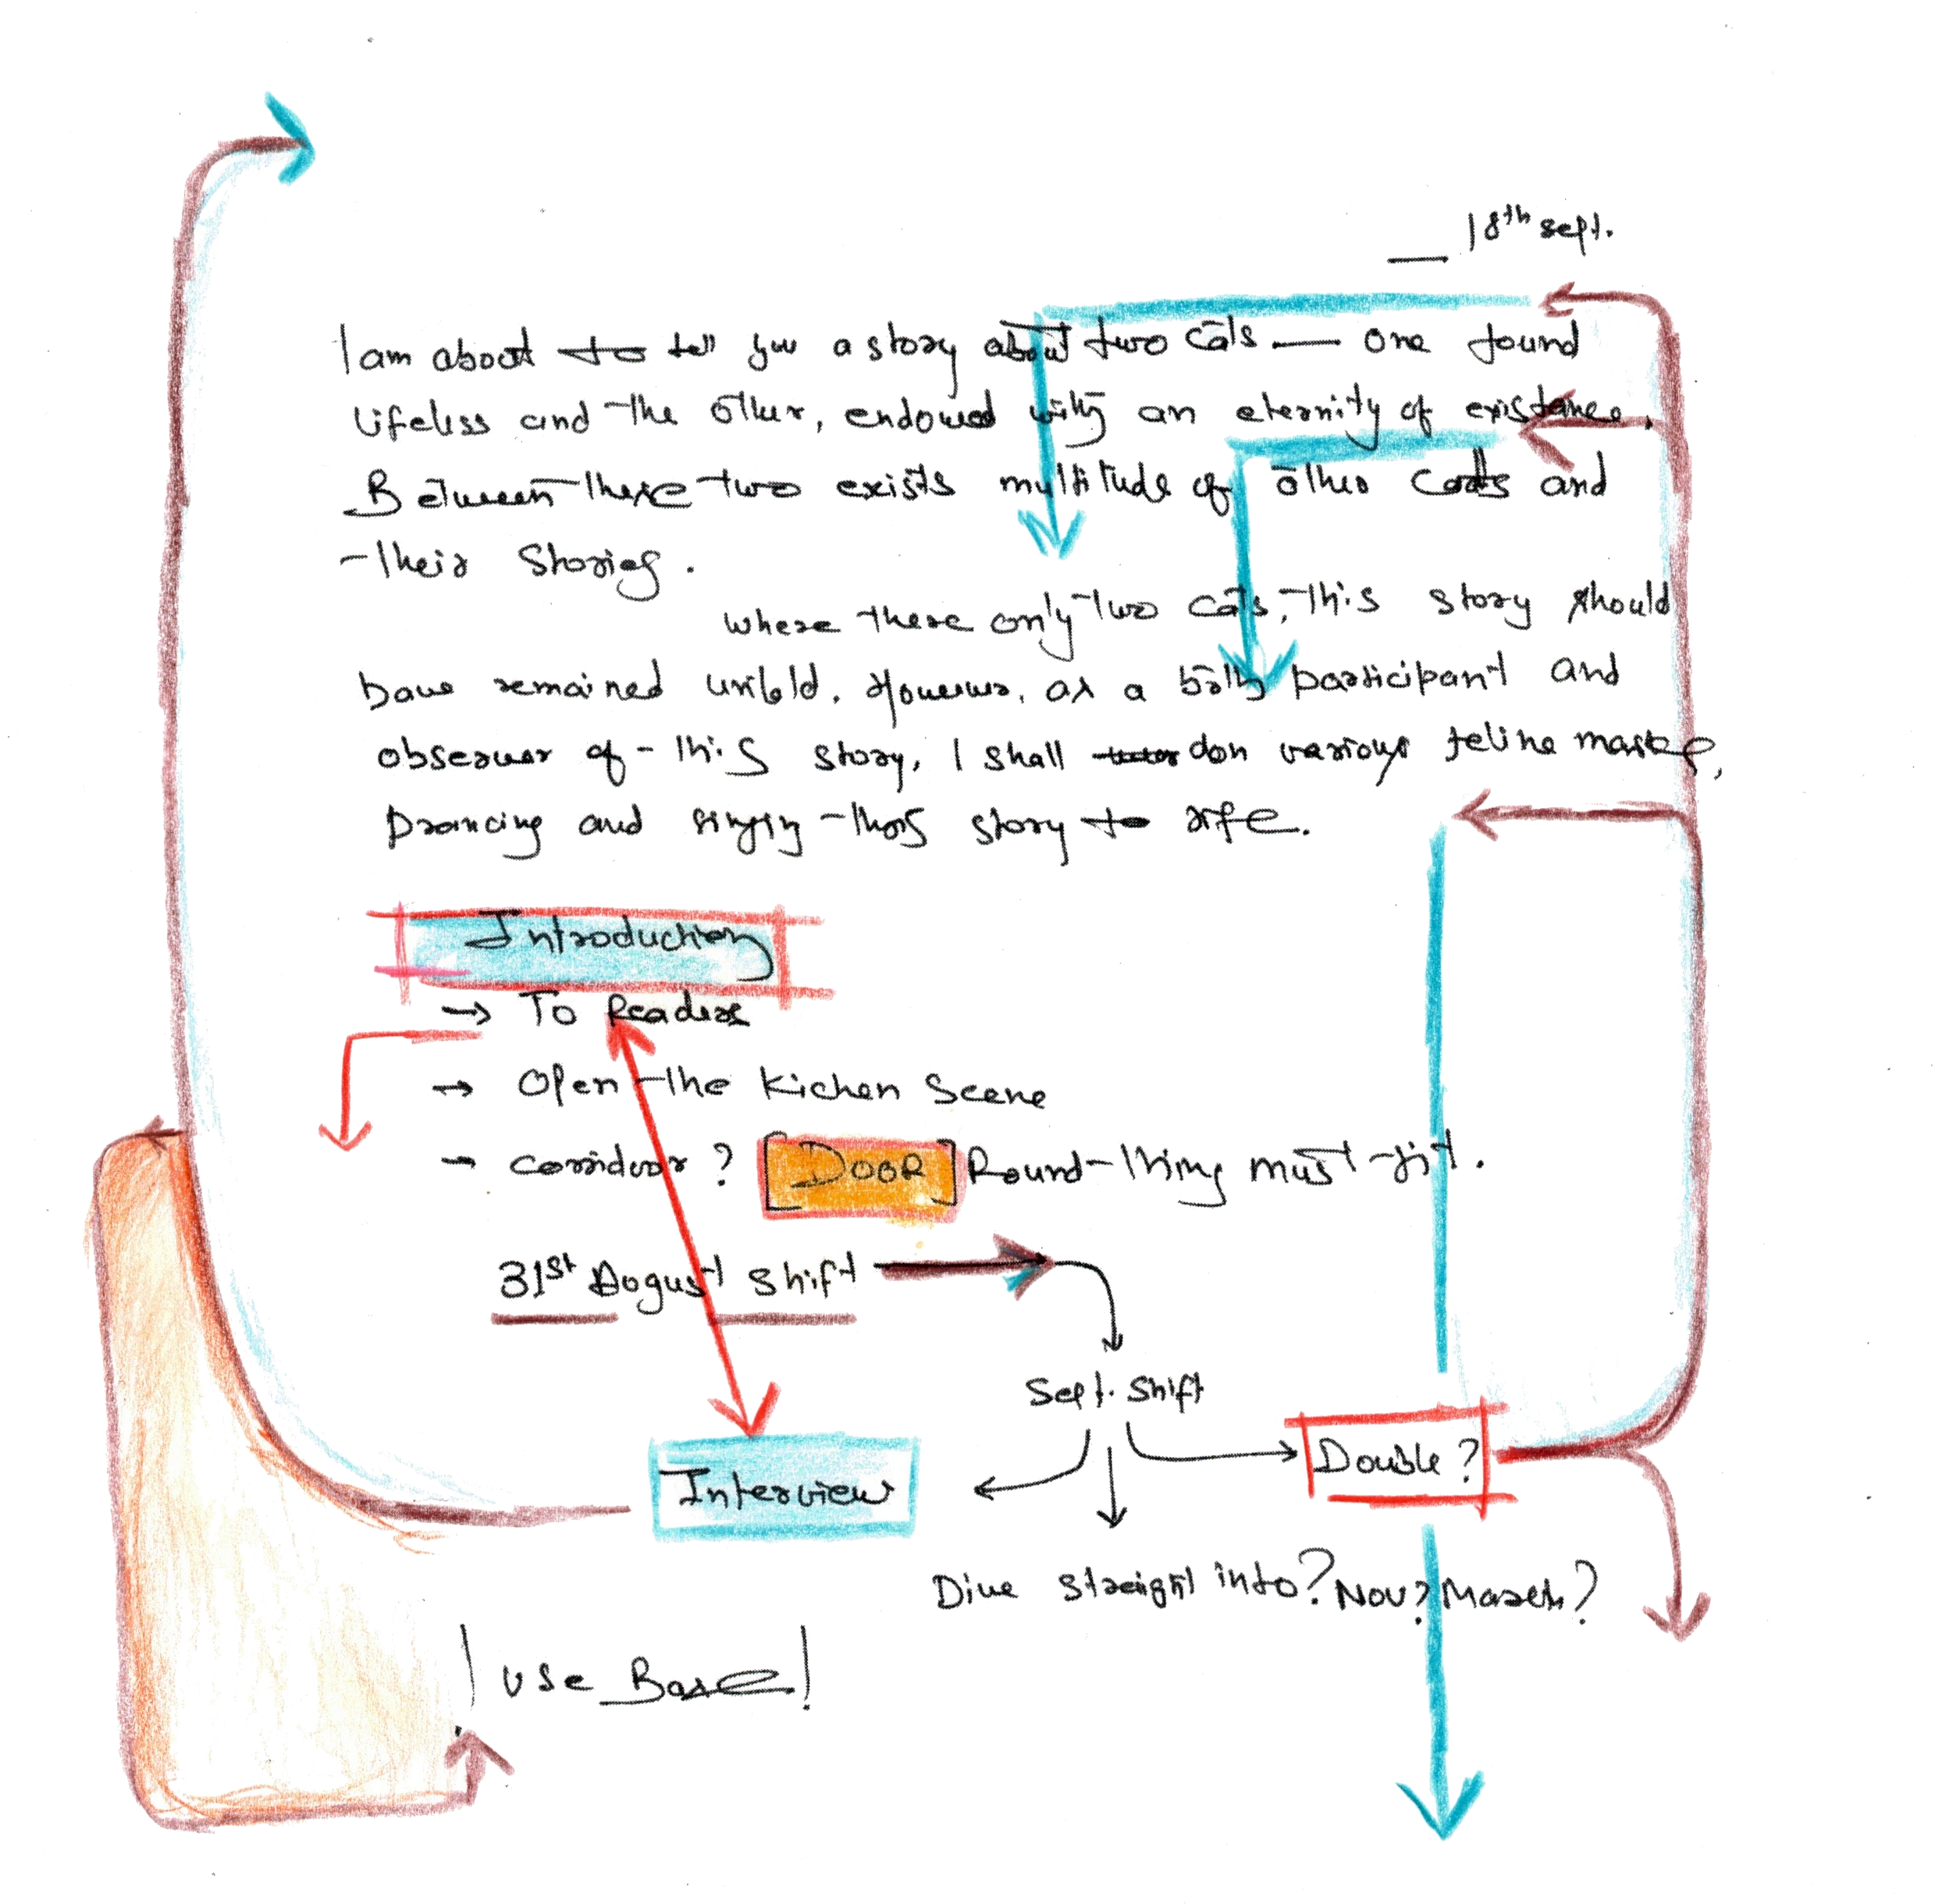 — 18th sept.
I am about to tell you a story about two cats — one found
lifeless and the other, endowed with an eternity of existance.
Between these two exists multitude of other cats and
their stories.
where there only two cats, this story should
have remained untold. However, as a both participant and
observer of this story, I shall don various feline masks,
prancing and singing this story to life.
Introduction
→ To Reader
→ Open the Kichen Scene
→ corridoor? [DOOR] Round thing must fit.
31st August shift
Sept. shift
Interview
Double?
Dive straight into? Nov? March?
! Use Base!